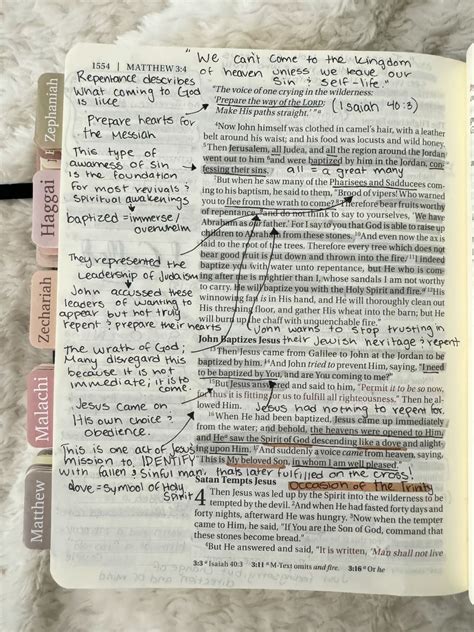 1554 | MATTHEW 3:4
"We can't come to the Kingdom
of heaven unless we leave our
sin & self-life."
Repentance describes
What coming to God
is like
Prepare hearts for
the Messiah
This type of
awareness of Sin
is the foundation
for most revivals &
Spiritual awakenings
baptized = immerse/
overwhelm
They represented the
Leadership of Judaism
John accussed these
leaders of wanting to
appear but not truly
repent & prepare their hearts
The wrath of God;
Many disregard this
because it is not
immediate; it is to
come.
Jesus came on
His own choice &
obedience.
This is one act of Jesus
mission to IDENTIFY
with fallen & sinful man, thats later fulfilled on the cross!
dove = symbol of Holy
Spirit
"The voice of one crying in the wilderness:
'Prepare the way of the LORD;
Make His paths straight.'"
(Isaiah 40:3)
4Now John himself was clothed in camel's hair, with a leather
belt around his waist; and his food was locusts and wild honey.
5Then Jerusalem, all Judea, and all the region around the Jordan
went out to him 6and were baptized by him in the Jordan, con-
fessing their sins.
all = a great many
7But when he saw many of the Pharisees and Sadducees com-
ing to his baptism, he said to them, "Brood of vipers! Who warned
you to flee from the wrath to come? 8Therefore bear fruits worthy
of repentance, 9and do not think to say to yourselves, 'We have
Abraham as our father.' For I say to you that God is able to raise up
children to Abraham from these stones. 10And even now the ax is
laid to the root of the trees. Therefore every tree which does not
bear good fruit is cut down and thrown into the fire. 11I indeed
baptize you with water unto repentance, but He who is com-
ing after me is mightier than I, whose sandals I am not worthy
to carry. He will baptize you with the Holy Spirit and fire. 12His
winnowing fan is in His hand, and He will thoroughly clean out
His threshing floor, and gather His wheat into the barn; but He
will burn the chaff with unquenchable fire."
John warns to stop trusting in
their Jewish heritage & repent
John Baptizes Jesus
13Then Jesus came from Galilee to John at the Jordan to be
baptized by him. 14And John tried to prevent Him, saying, "I need
to be baptized by You, and are You coming to me?"
15But Jesus answered and said to him, "Permit it to be so now,
for thus it is fitting for us to fulfill all righteousness." Then he al-
lowed Him.
Jesus had nothing to repent for.
16When He had been baptized, Jesus came up immediately
from the water; and behold, the heavens were opened to Him,
and He saw the Spirit of God descending like a dove and alight-
ing upon Him. 17And suddenly a voice came from heaven, saying,
"This is My beloved Son, in whom I am well pleased."
Occasion of the Trinity
Satan Tempts Jesus
4 Then Jesus was led up by the Spirit into the wilderness to be
tempted by the devil. 2And when He had fasted forty days and
forty nights, afterward He was hungry. 3Now when the tempter
came to Him, he said, "If You are the Son of God, command
that these stones become bread."
4But He answered and said, "It is written, 'Man shall not live
3:3 Isaiah 40:3 3:11 M-Text omits and fire. 3:16 Or he
Zephaniah
Haggai
Zechariah
Malachi
Matthew